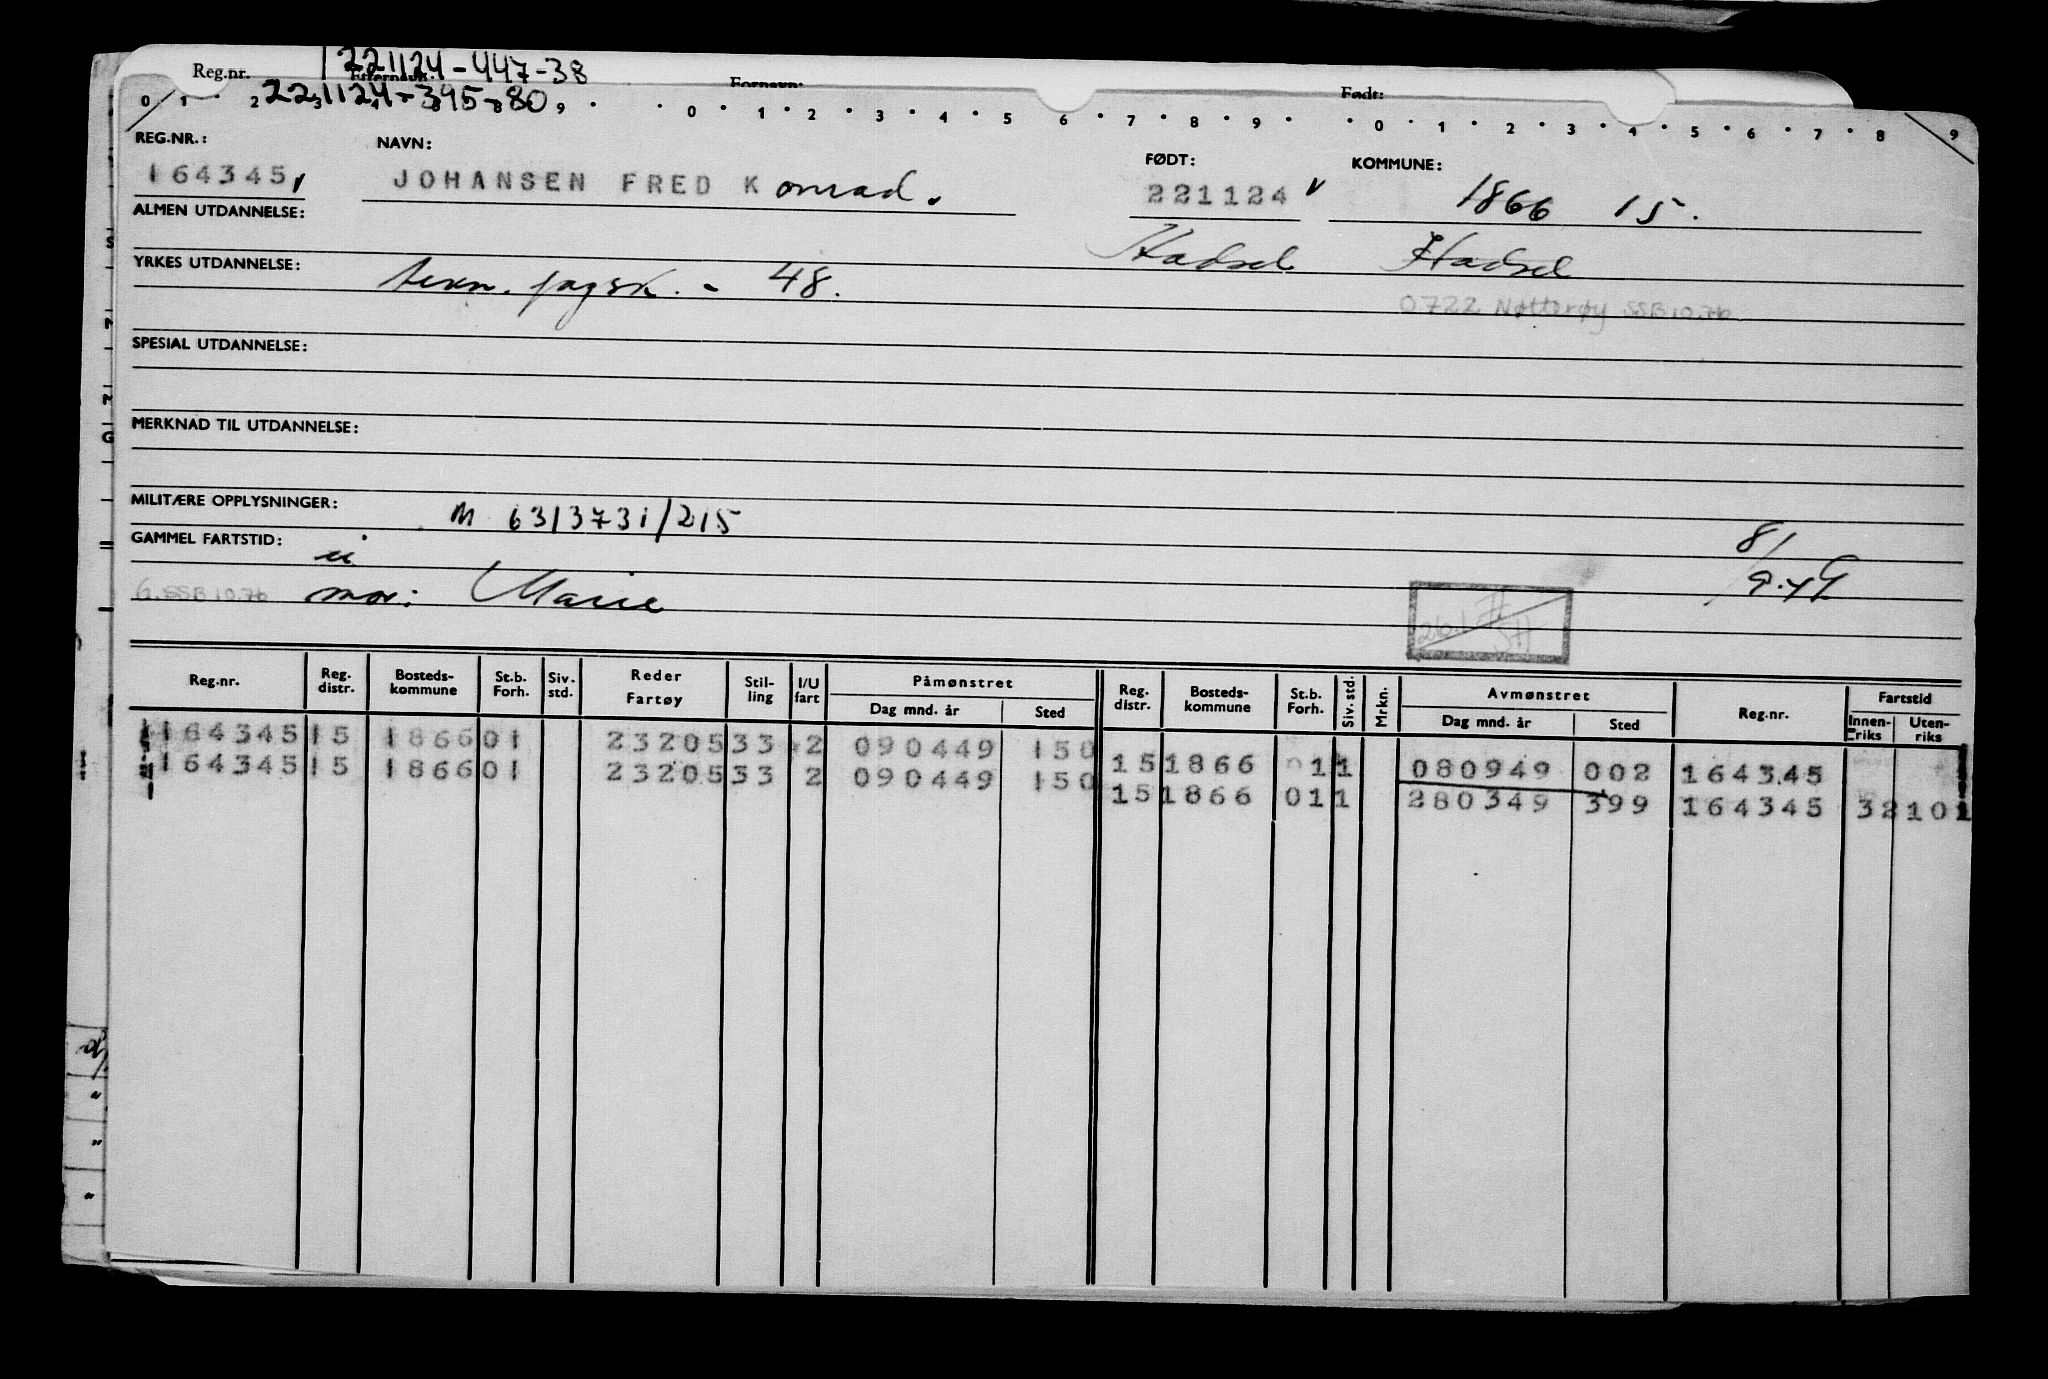 Reg.nr. 221124-447-38 Fornavn: Født:
221124-395-80
0 1 2 3 9 0 1 2 3 4 5 6 7 8 9 0 1 2 3 4 5 6 7 8 9
REG.NR.: NAVN: FØDT: KOMMUNE:
164345 JOHANSEN FRED Konrad. 221124 1866 15.
ALMEN UTDANNELSE: Hadsel Hadsel
YRKES UTDANNELSE: fagsk. - 48.
0722 Nøtterøy SSB 10.76
SPESIAL UTDANNELSE:
MERKNAD TIL UTDANNELSE:
MILITÆRE OPPLYSNINGER: M 63/3731/215
GAMMEL FARTSTID: 8/
G.SSB 10.76 mor: Marie 9.49
Reg.nr. Reg. distr. Bosteds- kommune St.b. Forh. Siv. std. Reder Fartøy Stil- ling I/U fart Påmønstret Dag mnd. år Sted Reg. distr. Bosteds- kommune St.b. Forh. Siv. std. Mrkn. Avmønstret Dag mnd. år Sted Reg.nr. Fartstid Innen- riks Uten- riks
164345 15 1866 01 23205 33 2 090449 150 15 1866 01 1 080949 002 164345
164345 15 1866 01 23205 33 2 090449 150 15 1866 01 1 280349 399 164345 32101